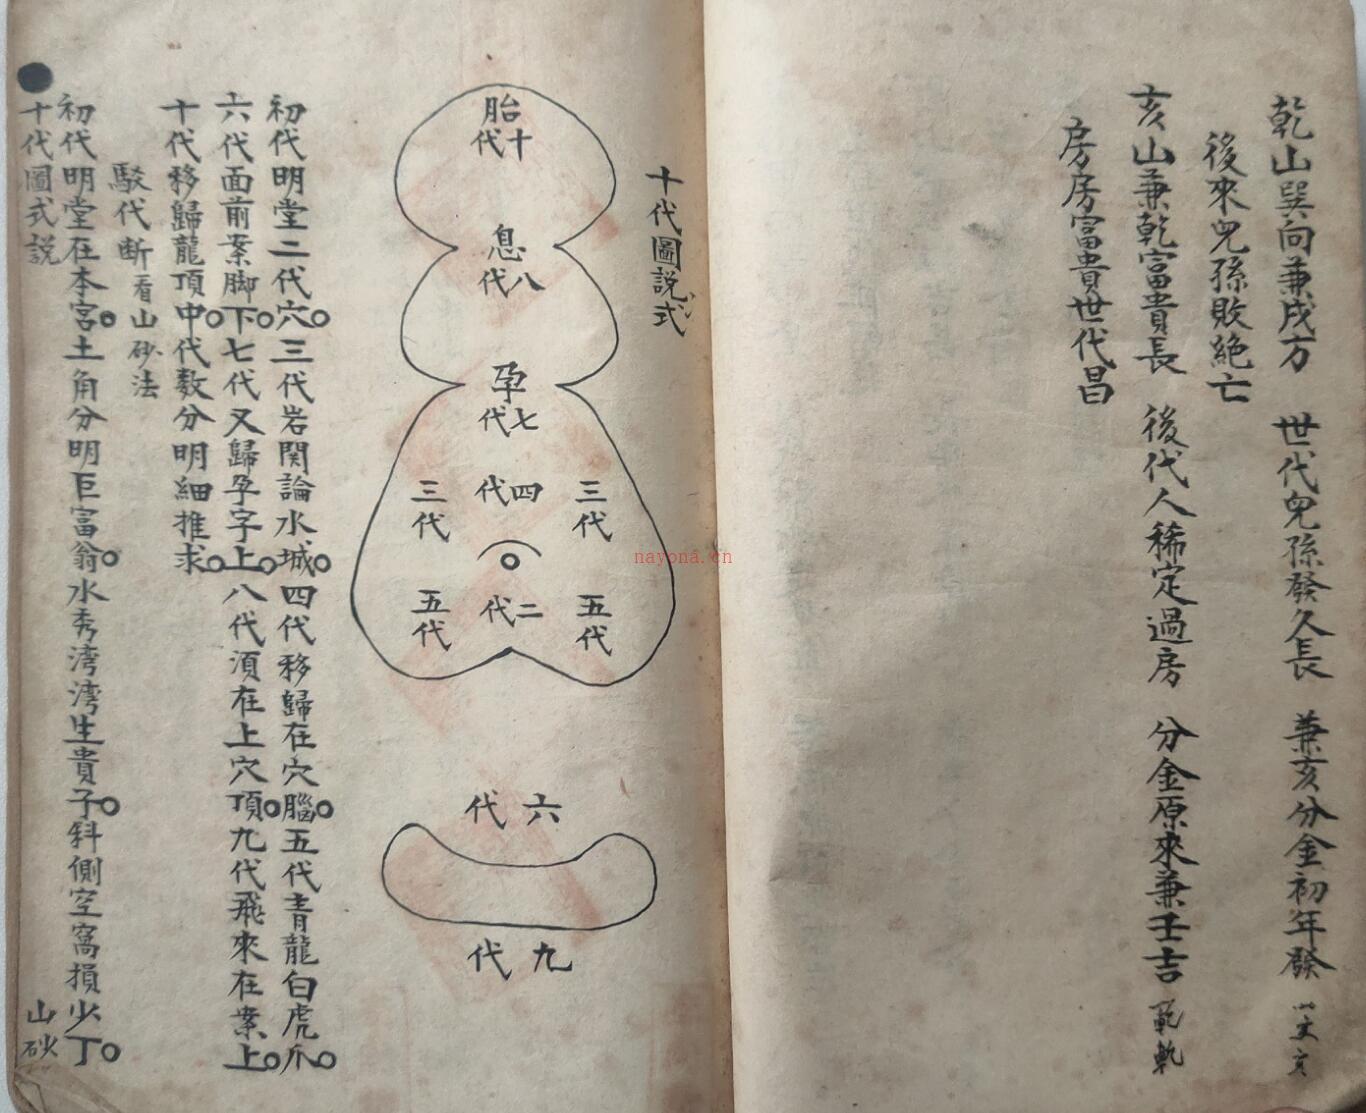 乾山巽向兼戌方　世代兒孫發久長　兼亥分金初年發
後來兒孫敗絕亡
亥山兼乾富貴長　後代人稀定過房　分金原來兼壬吉
房房富貴世代昌
十代圖説式
胎
代十
息
代八
孕
代七
代四
三代
三代
代二
五代
五代
代六
代九
初代明堂二代穴○三代岩関論水城○四代移歸在穴腦○五代青龍白虎爪○
六代面前案脚下○七代又歸孕字上○八代須在上穴頂○九代飛來在案上○
十代移歸龍頂中○代数分明細推求○
駁代断看山砂法
初代明堂在本宮○土角分明巨富翁○水秀湾湾生貴子○斜側空窩損少丁○
十代圖式説
山砂
nayona.cn